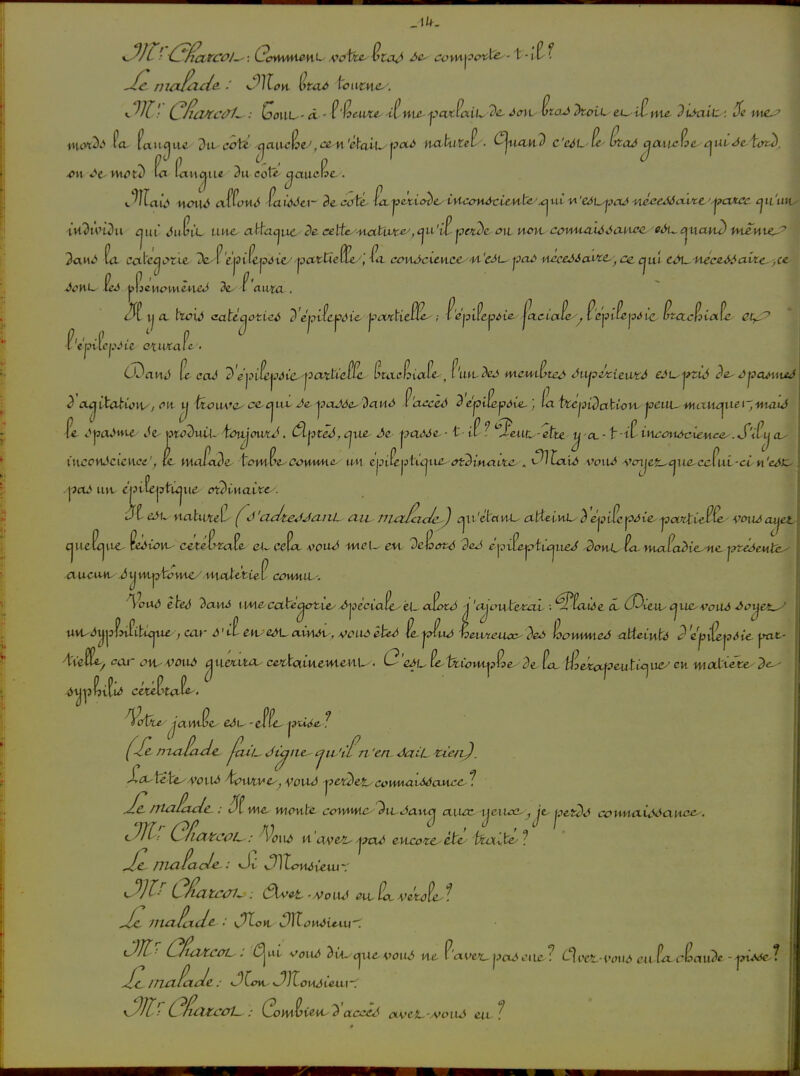 _14_
Mr Charcot : Comment votre bras se comporte-t-il ?
Le malade : Mon bras tourne.
Mr Charcot : Tout-à-l'heure il me parlait de son bras droit et il me disait : Je me
mords la langue du côté gauche, ce n'était pas naturel. Quand c'est le bras gauche qui se tord,
on se mord la langue du côté gauche.
Mais nous allons laisser de côté la période inconsciente, qui n'est pas nécessaire, parce qu'un
individu qui subit une attaque de cette nature, qu'il perde ou non connaissance est quand même
dans la catégorie de l'épilepsie partielle ; la conscience n'est pas nécessaire, ce qui est nécessaire, ce
sont les phénomènes de l'aura.
Il y a trois catégories d'épilepsie partielle ; l'épilepsie faciale, l'épilepsie brachiale et
l'épilepsie crurale.
Dans le cas d'épilepsie partielle brachiale, l'un des membres supérieurs est pris de spasmes
d'agitation, on y trouve ce qui se passe dans l'accès d'épilepsie ; la trépidation peut manquer, mais
le spasme se produit toujours. Après, que se passe-t-il ? Peut-être y-a-t-il inconscience. S'il y a
inconscience, le malade tombe comme un épileptique ordinaire. Mais vous voyez que celui-ci n'est
pas un épileptique ordinaire.
Il est naturel (s'adressant au malade) qu'étant atteint d'épilepsie partielle vous ayez
quelque lésion cérébrale et cela vous met en dehors des épileptiques dont la maladie ne présente
aucun symptôme matériel connu.
Vous êtes dans une catégorie spéciale et alors j'ajouterai : Plaise à Dieu que vous soyez
un syphilitique, car s'il en est ainsi, vous êtes le plus heureux des hommes atteints d'épilepsie par-
tielle, car on vous guérira certainement. C'est le triomphe de la thérapeutique en matière de
syphilis cérébrale.
Votre jambe est-elle prise ?
(Le malade fait signe qu'il n'en sait rien).
La tête vous tourne, vous perdez connaissance ?
Le malade : Il me monte comme du sang aux yeux, je perds connaissance.
Mr Charcot : Vous n'avez pas encore été traité ?
Le malade : Si Monsieur.
Mr Charcot : Avez-vous eu la vérole ?
Le malade : Non Monsieur.
Mr Charcot : Qui vous dit que vous ne l'avez pas eue ? Avez-vous eu la chaude-pisse ?
Le malade : Non Monsieur.
Mr Charcot : Combien d'accès avez-vous eu ?